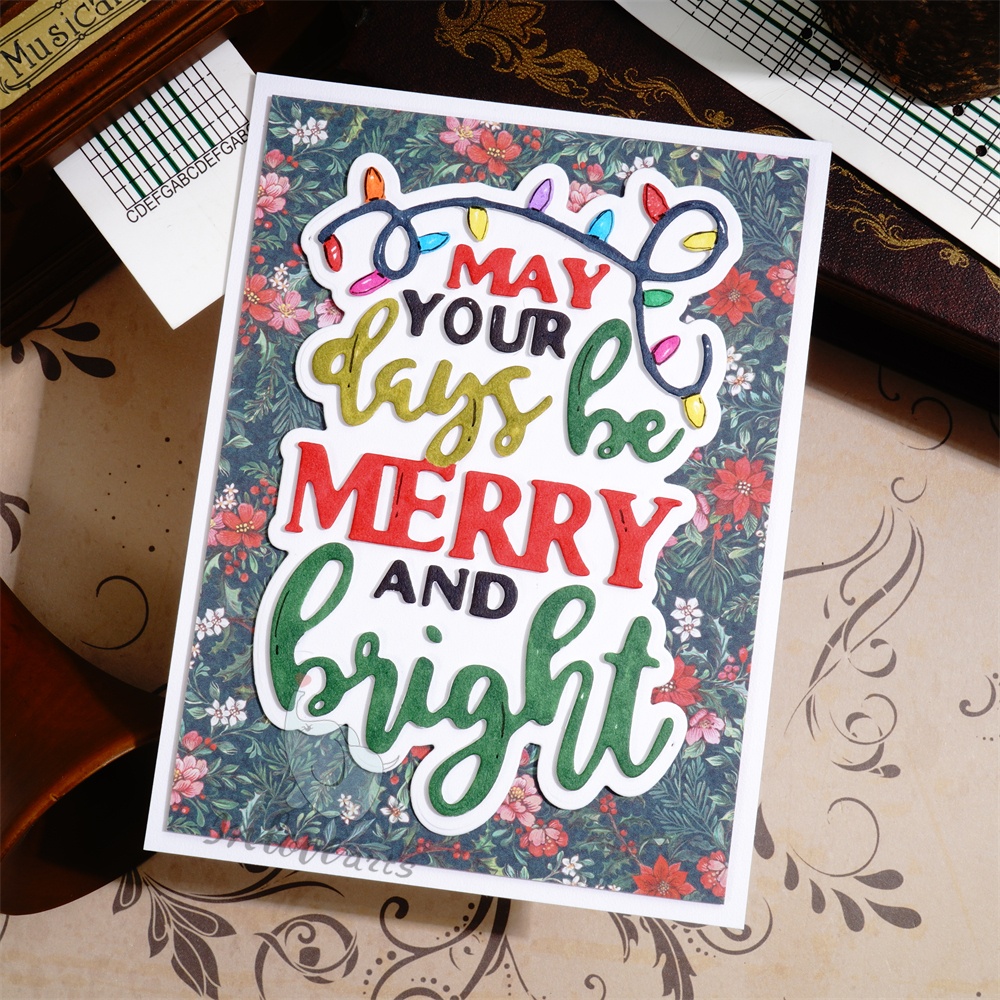 Musica
CDEFGABCDEFGAB
MAY
YOUR
days be
MERRY
AND
bright